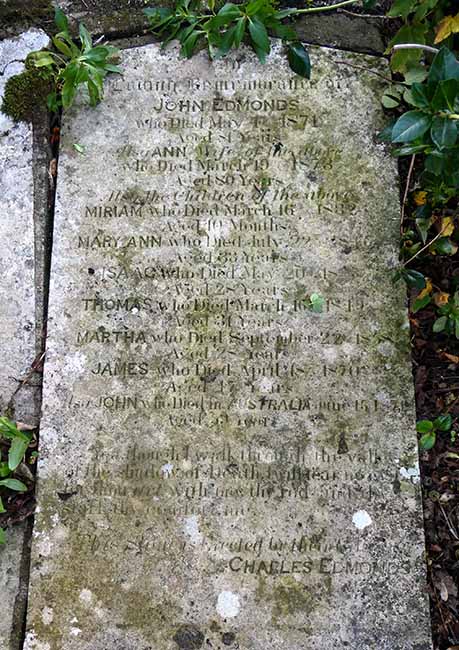 JOHN EDMONDS
who Died May 1871
Aged 81 Years
Also ANN Wife of the above
who Died March 19
Aged 80 Years
Also the Children of the above
MIRIAM who Died March 16
Aged 10 Months
MARY ANN who Died July 22
Aged 33 Years
ISAAC who Died May 20
Aged 28 Years
THOMAS who Died March 16 1849
Aged 31 Years
MARTHA who Died September 22 1858
Aged 28 Years
JAMES who Died April
Aged 47 Years
Also JOHN who Died in AUSTRALIA June 15
Aged Years
Yea though I walk through the vall
of the shadow of Death I will fear no
thou art with me thy rod and
staff thy comfort me
This Stone is Erected by their
CHARLES EDMONDS